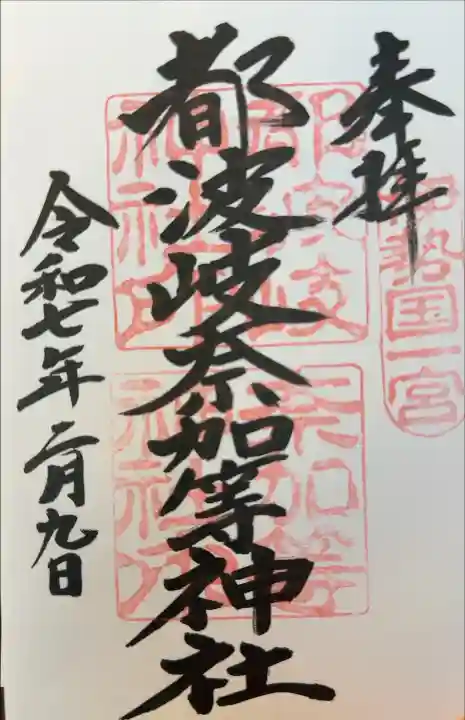 奉拝
伊勢国一宮
都波岐奈加等神社
都波岐
神社印
奈加等
神社印
令和七年二月九日